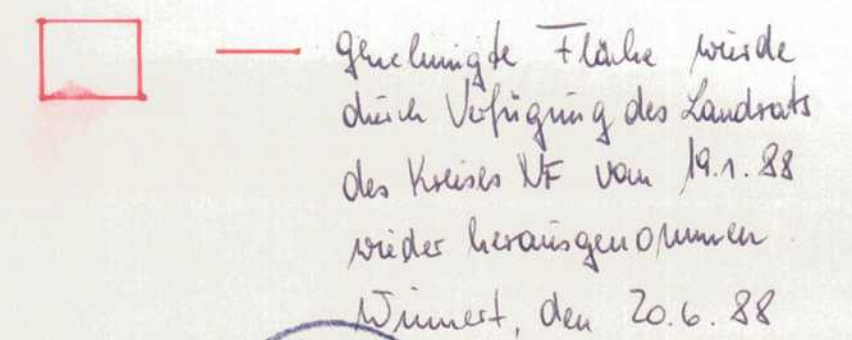 genehmigte Fläche wurde
durch Verfügung des Landrats
des Kreises NF vom 19.1.88
wieder herausgenommen
Winnert, den 20.6.88